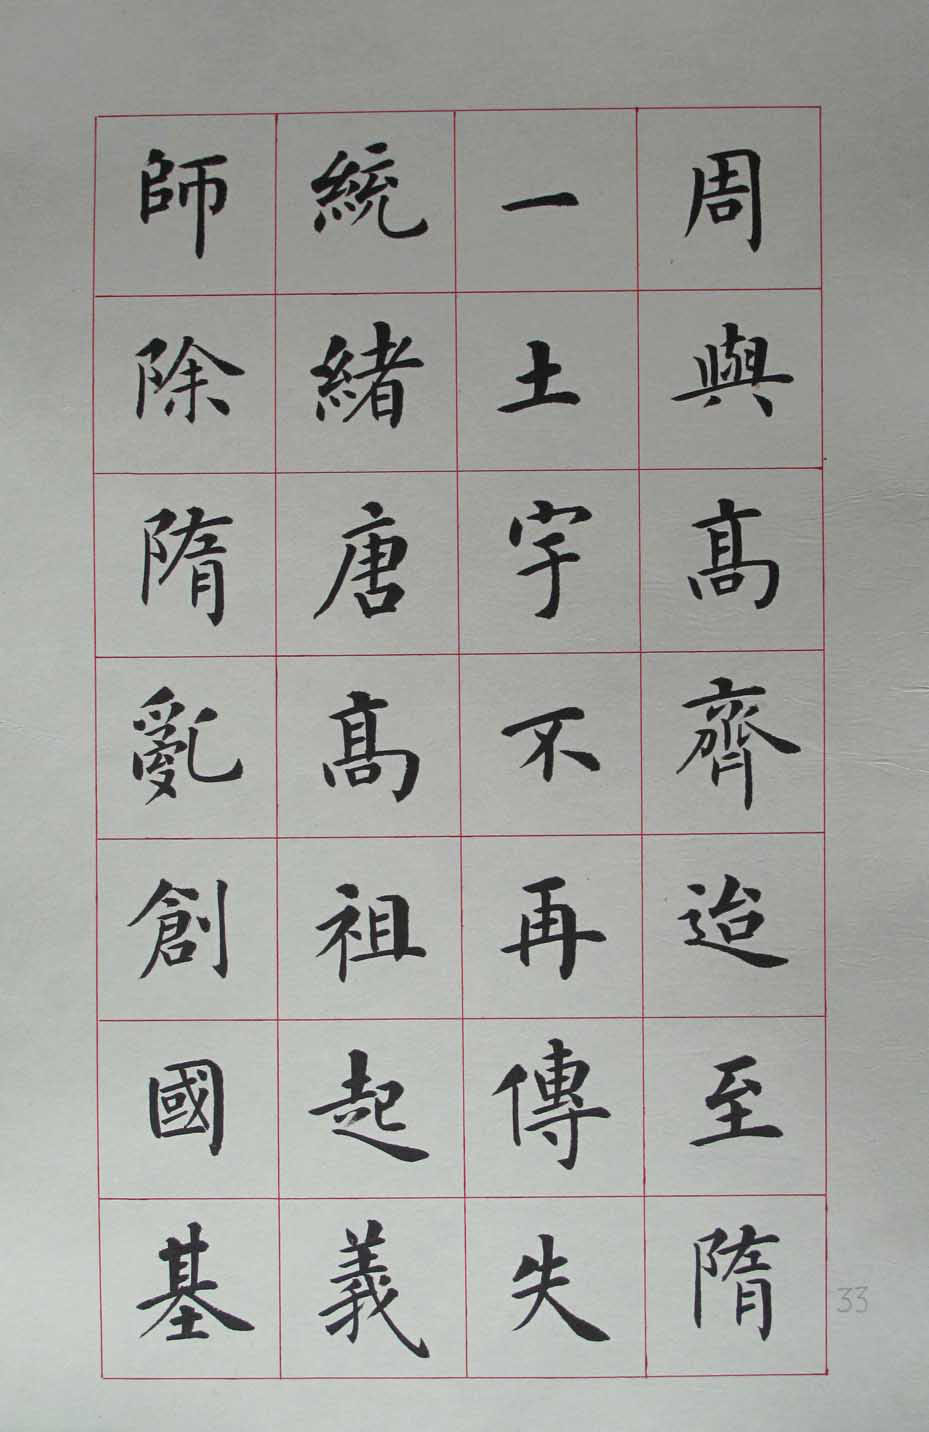 周與高齊迨至隋
一土宇不再傳失
統緒唐高祖起義
師除隋亂創國基
33